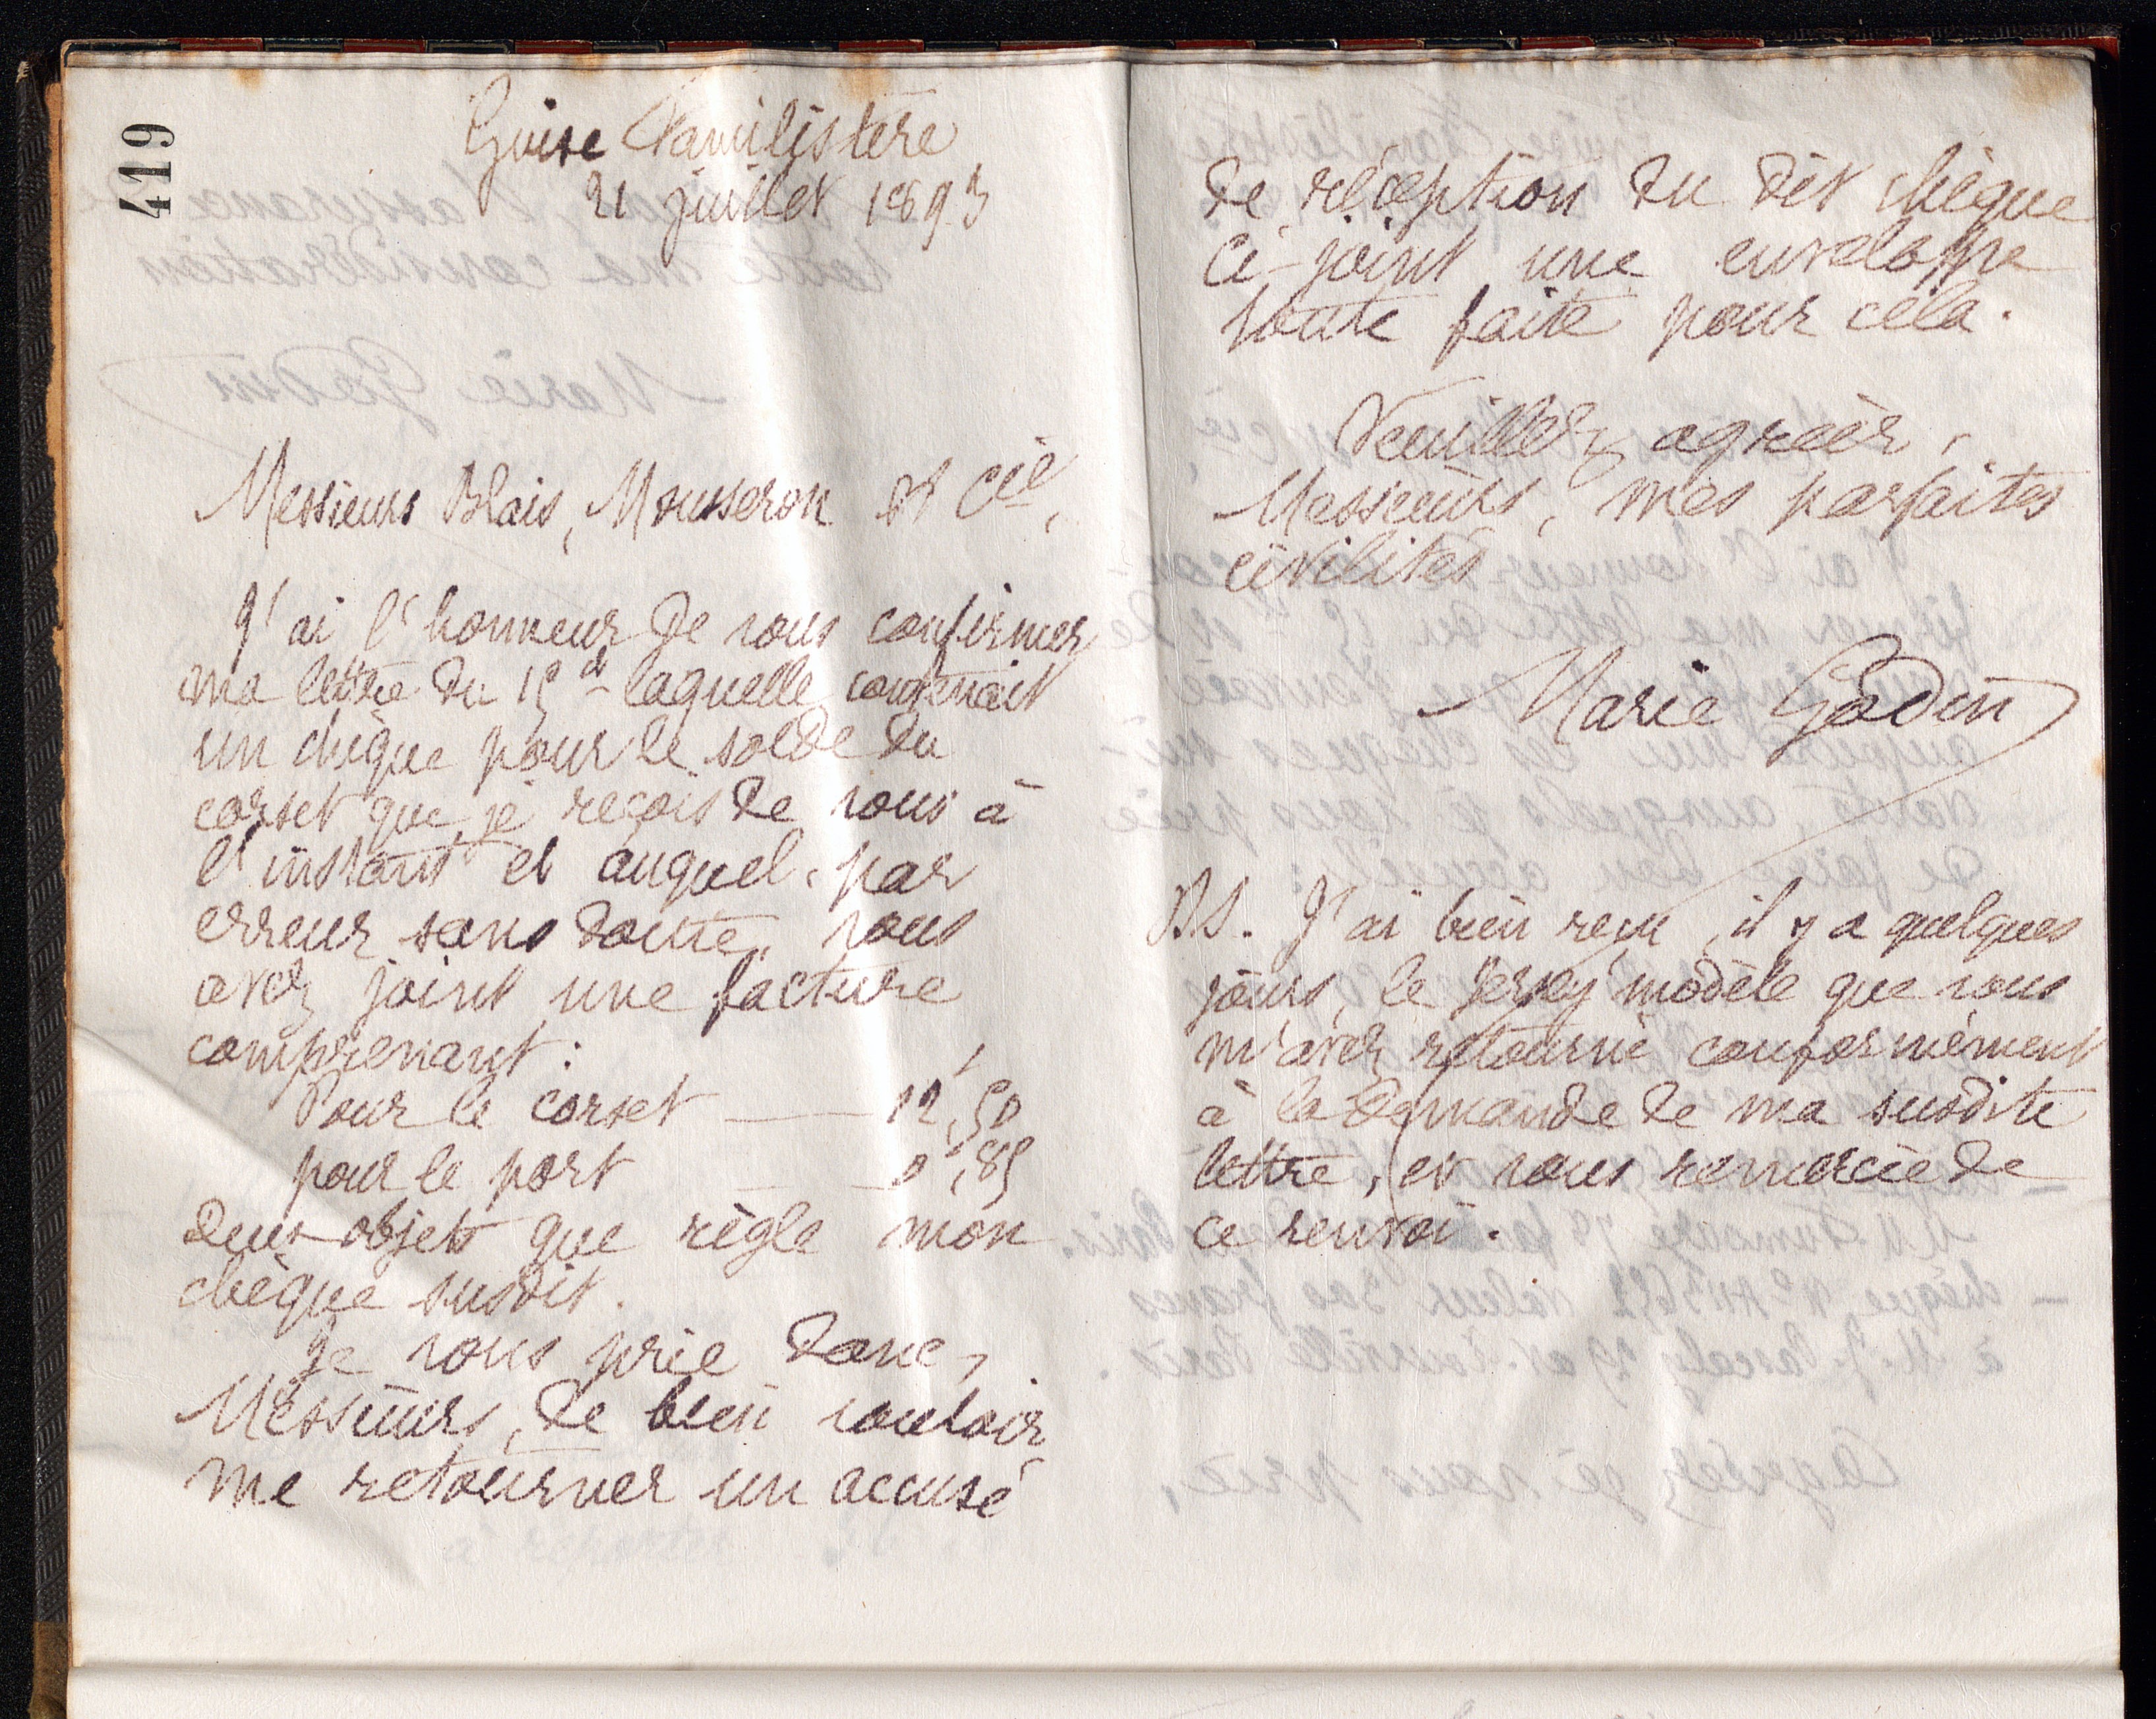 419
Guise Familistère
21 juillet 1893
Messieurs Blais, Mousseron et Cie,
J'ai l'honneur de vous confirmer
ma lettre du 15 ct laquelle contenait
un chèque pour le solde du
corset que je reçois de vous à
l'instant et auquel, par
erreur sans doute, vous
avez joint une facture
comprenant :
Pour le corset — 12f,50
pour le port — 0f,85
deux objets que règle mon
chèque susdit.
Je vous prie donc,
Messieurs, de bien vouloir
me retourner un accusé
de réception du dit chèque
ci-joint une enveloppe
toute faite pour cela.
Veuillez agréer,
Messieurs, mes parfaites
civilités
Marie Godin
P.S. J'ai bien reçu, il y a quelques
jours, le Jersey modèle que vous
m'avez retourné conformément
à la demande de ma susdite
lettre, et vous remercie de
ce renvoi.